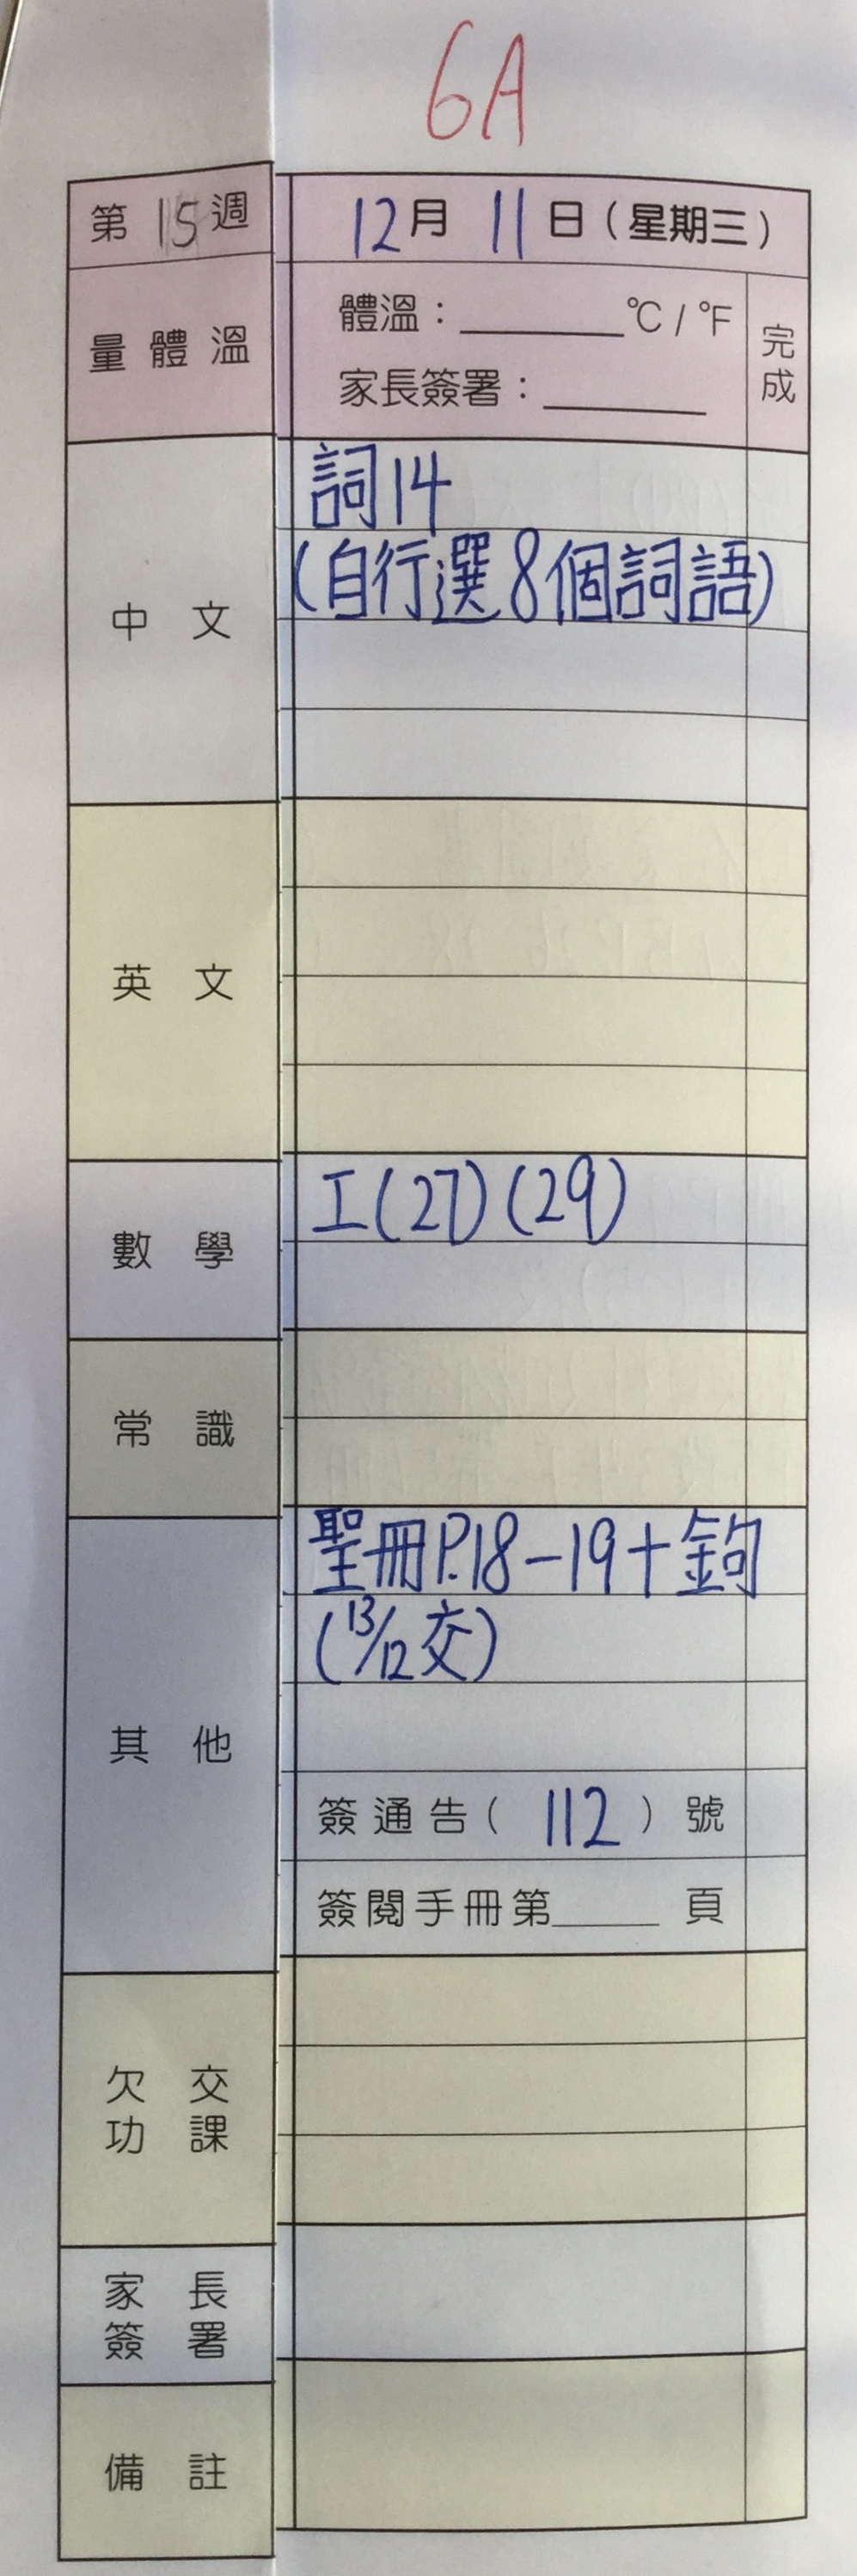 6A
第 15 週 12月 11日(星期三)
量體溫
體溫:______°C / °F
家長簽署:______
完成
中文
詞14
(自行選8個詞語)
英文
數學
工(27)(29)
常識
其他
聖冊P.18-19+鉤
(13/12交)
簽通告( 112 )號
簽閱手冊第____頁
欠交
功課
家長
簽署
備註